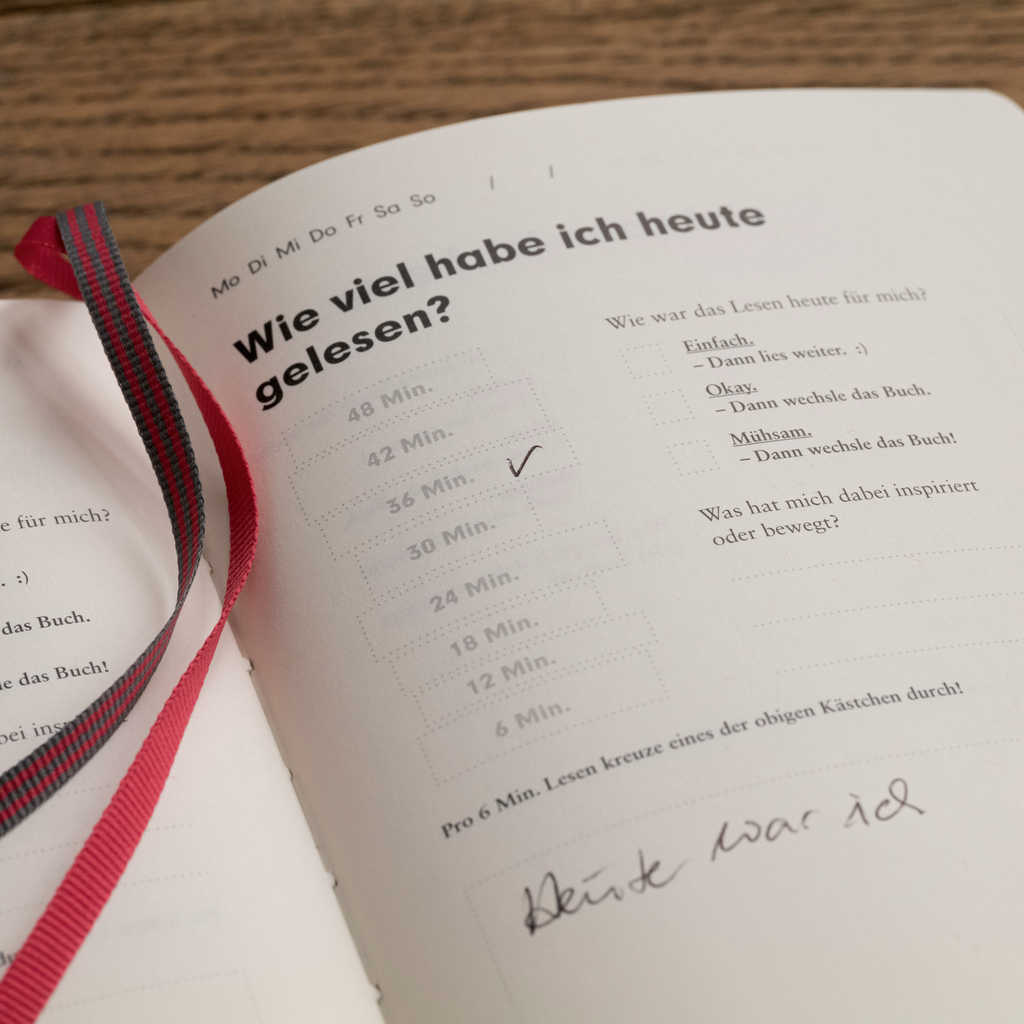 e für mich?
. :)
das Buch.
le das Buch!
bei
Mo Di Mi Do Fr Sa So / /
Wie viel habe ich heute
gelesen?
48 Min.
42 Min.
36 Min. ✓
30 Min.
24 Min.
18 Min.
12 Min.
6 Min.
Wie war das Lesen heute für mich?
Einfach.
– Dann lies weiter. :)
Okay.
– Dann wechsle das Buch.
Mühsam.
– Dann wechsle das Buch!
Was hat mich dabei inspiriert
oder bewegt?
Pro 6 Min. Lesen kreuze eines der obigen Kästchen durch!
Heute war ich